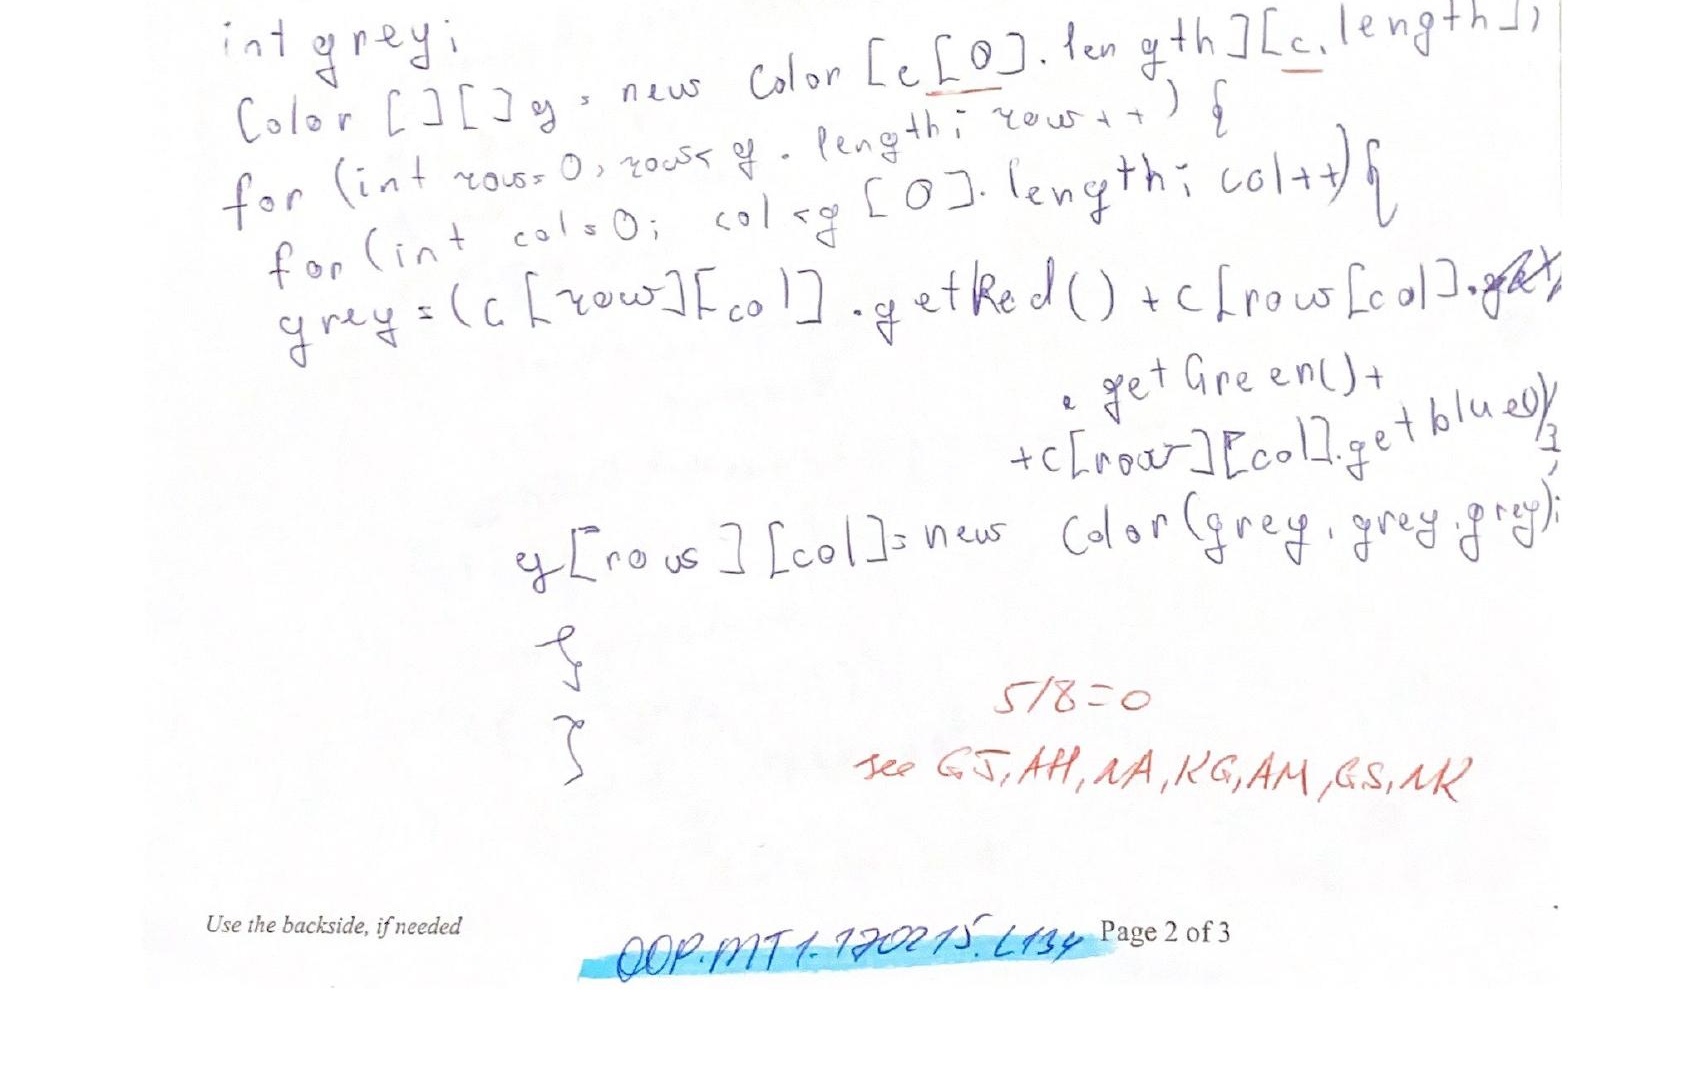 int grey;
Color [][] g = new Color [c[0].length][c.length];
for (int row=0; row< g.length; row++) {
for (int col=0; col <g [0].length; col++) {
grey=(c[row][col].getRed() + c[row[col].
.getGreen()+
+c[row][col].getblue())/3;
g[row][col]= new Color(grey, grey, grey);
}
}
5/8=0
see GJ, AH, NA, KG, AM, GS, NK
Use the backside, if needed
OOP.MT1.170215.L134 Page 2 of 3